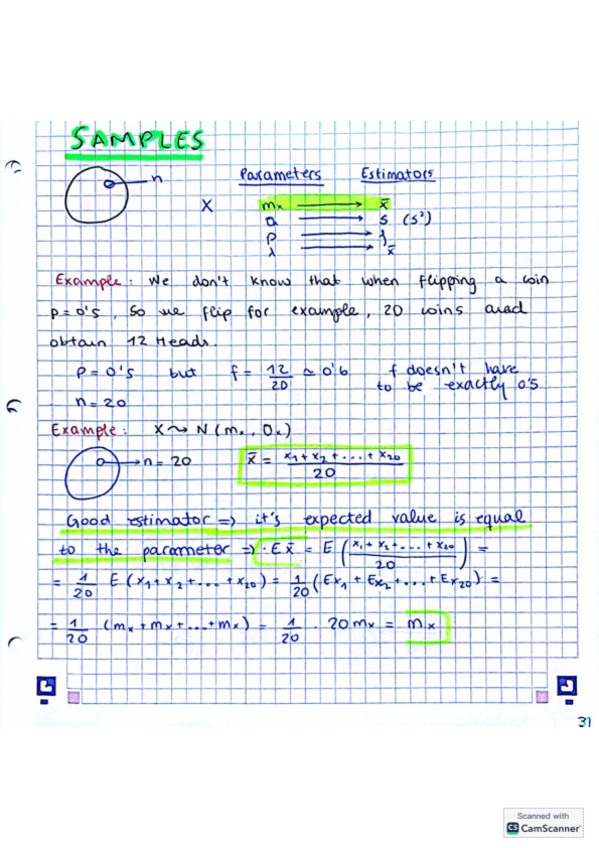 SAMPLES
n Parameters Estimators
X mₓ → x̄
→ s (s²)
p → f
λ → x̄
Example: We don't know that when flipping a coin
p=0's, so we flip for example, 20 coins and
obtain 12 Heads.
p=0'5 but f = 12/20 ≃ 0'6 f doesn't have
to be exactly 0's
n=20
Example: X ~ N(mₓ, σₓ)
→ n=20 x̄ = (x₁+x₂+...+x₂₀)/20
Good estimator => it's expected value is equal
to the parameter => · E x̄ = E((x₁+x₂+...+x₂₀)/20) =
= 1/20 E(x₁+x₂+...+x₂₀) = 1/20 (Ex₁+Ex₂+...+Ex₂₀) =
= 1/20 (mₓ+mₓ+...+mₓ) = 1/20 · 20mₓ = mₓ
31
Scanned with
CS CamScanner